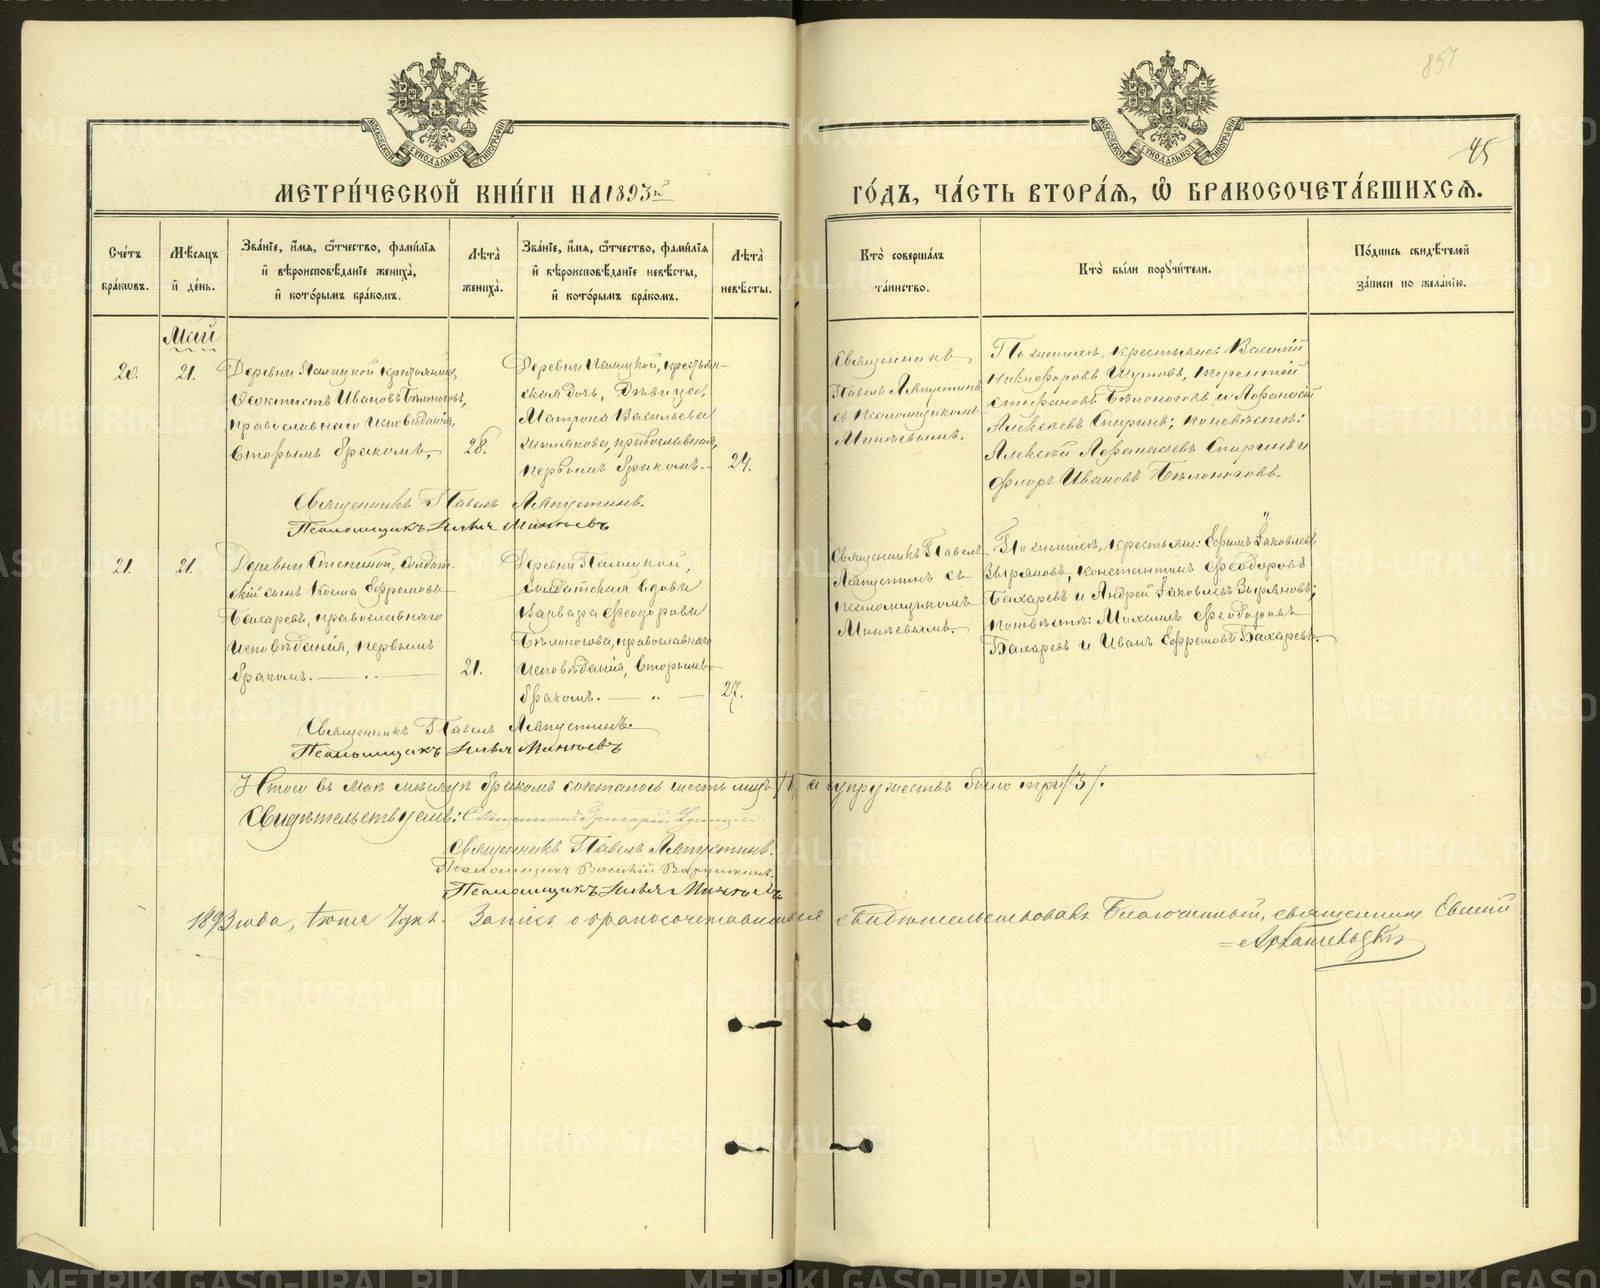 851
45
МЕТРИ́ЧЕСКОЙ КНИ́ГИ НА 1893й
ГО́ДЪ, ЧА́СТЬ ВТОРА́Я, Ѡ БРАКОСОЧЕТА́ВШИХСЯ.
Сче́тъ бра́кѡвъ.
Мѣ́сяцъ и де́нь.
Зва́нїе, и́мя, ѻ́тчество, фами́лїя
и вѣроисповѣ́данїе жениха̀,
и кото́рымъ бра́комъ.
Лѣ́та жениха̀.
Зва́нїе, и́мя, ѻ́тчество, фами́лїя
и вѣроисповѣ́данїе невѣ́сты,
и кото́рымъ бра́комъ.
Лѣ́та невѣ́сты.
Кто̀ соверша́лъ та́инство.
Кто̀ бы́ли порꙋчи́тели.
По́дпись свидѣ́телей за́писи по жела́нїю.
Май
20.
21.
Деревни Палицкой крестьянинъ,
Ѳеоктистъ Ивановъ Бѣлоноговъ,
православнаго исповѣданія,
вторымъ бракомъ.
28.
Деревни Палицкой, крестьян-
ская дочь, дѣвица,
Матрона Васильева
православная,
первымъ бракомъ.
24.
Священникъ
Павелъ Ляпустинъ
съ псаломщикомъ
По женихѣ, крестьяне: Василій
Никифоровъ Шутовъ, Терентій
Стефановъ Бѣлоноговъ и Афанасій
Алексѣевъ Спиринъ; по невѣстѣ:
Алексѣй Афанасьевъ Спиринъ и
Флоръ Ивановъ Бѣлоноговъ.
Священникъ Павелъ Ляпустинъ.
Псаломщикъ Илья
21.
21.
Деревни солдат-
скій сынъ Косма Ефремовъ
Бахаревъ, православнаго
исповѣданія, первымъ
бракомъ.
21.
Деревни Палицкой,
солдатская вдова
Варвара Ѳеодорова
Бѣлоногова, православнаго
исповѣданія, вторымъ
бракомъ.
27.
Священникъ Павелъ
Ляпустинъ съ
псаломщикомъ
По женихѣ, крестьяне: Ефимъ Яковлевъ
Зыряновъ, Константинъ Ѳеодоровъ
Бахаревъ и Андрей Яковлевъ Зыряновъ;
по невѣстѣ: Михаилъ Ѳеодоровъ
Бахаревъ и Иванъ Ефремовъ Бахаревъ.
Священникъ Павелъ Ляпустинъ.
Псаломщикъ Илья
Итого въ маѣ мѣсяцѣ бракомъ сочеталось шесть лицъ, а супружествъ было три /3/.
Свидѣтельствуемъ: Священникъ Григорій
Священникъ Павелъ Ляпустинъ.
Псаломщикъ Василій
Псаломщикъ Илья
1893 года, Іюня 7 дня. Запись о бракосочетавшихся свидѣтельствовалъ Благочинный, священникъ Евгеній